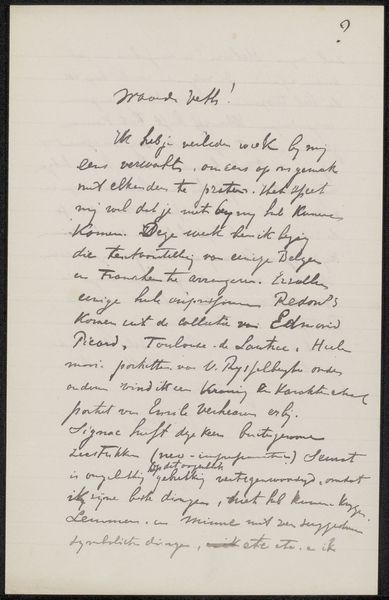 ?
Waarde Veth!
Ik heb je verleden week by my
eens verwacht, om eens op ons gemak
met elkander te praten. Het spijt
my wel dat je niet by my heb kunnen
komen. Deze week ben ik bezig
die tentoonstelling van eenige Belgen
en Franschen te arrangeren. Er zullen
eenige hele Redon's
komen uit de collectie van Edmond
Picard, Toulouse de Lautrec, Hele
mooi portretten van V. Rysselberghe onder
andere vind ik een karakter
portret van Emile Verhaeren erby.
Signac heeft deze keer buitengewone
zeestukken (neo-impressionisten) Seurat
is ongelukkig gebrekkig vertegenwoordigd, omdat
ik zyne beste dingen, niet heb kunnen krygen.
Lemmen en Minne met zeer
symbolische dingen, etc etc. en ik